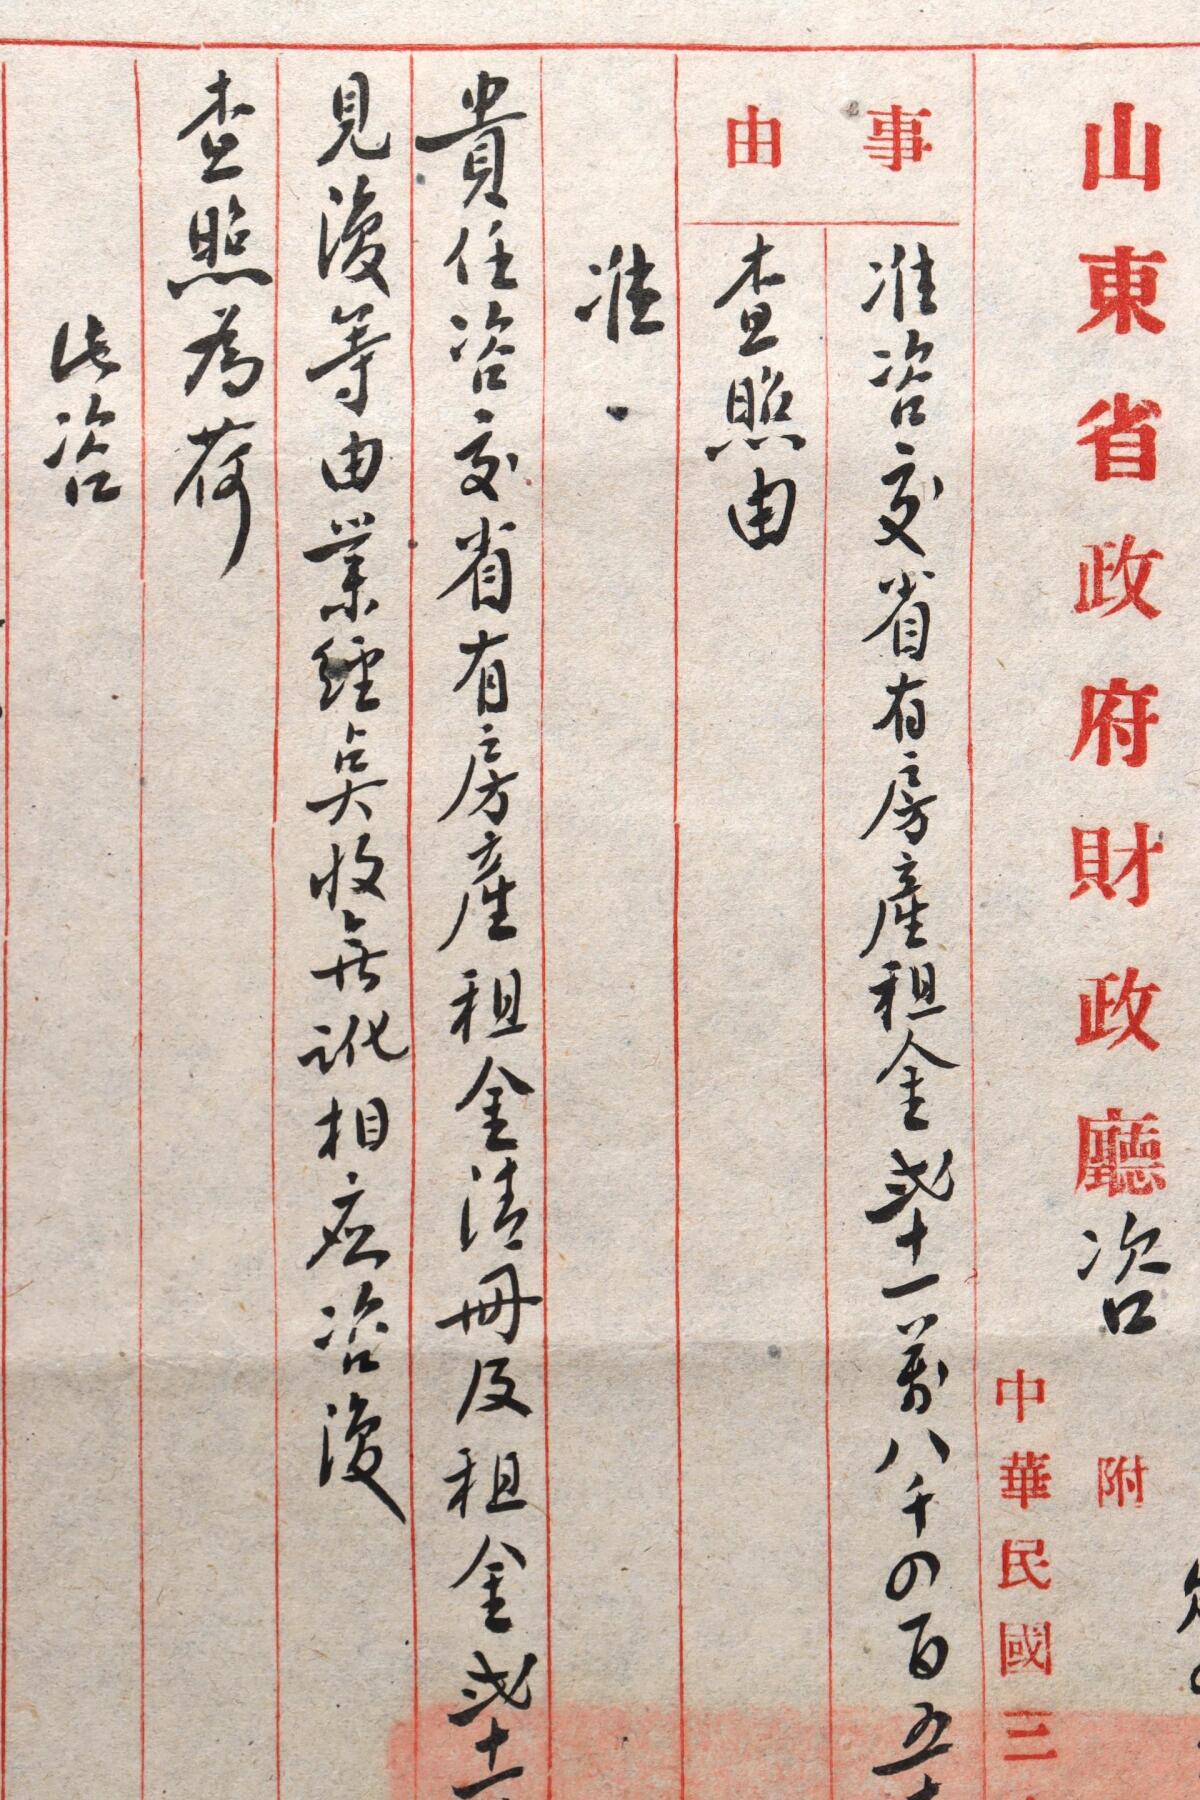 山東省政府財政廳咨
附
中華民國三
事由
准咨交省有房產租金貳十一萬八千四百五十
查照由
准
貴任咨交省有房產租金清冊及租金貳十一
見復等由業經点收無訛相應咨復
查照為荷
此咨